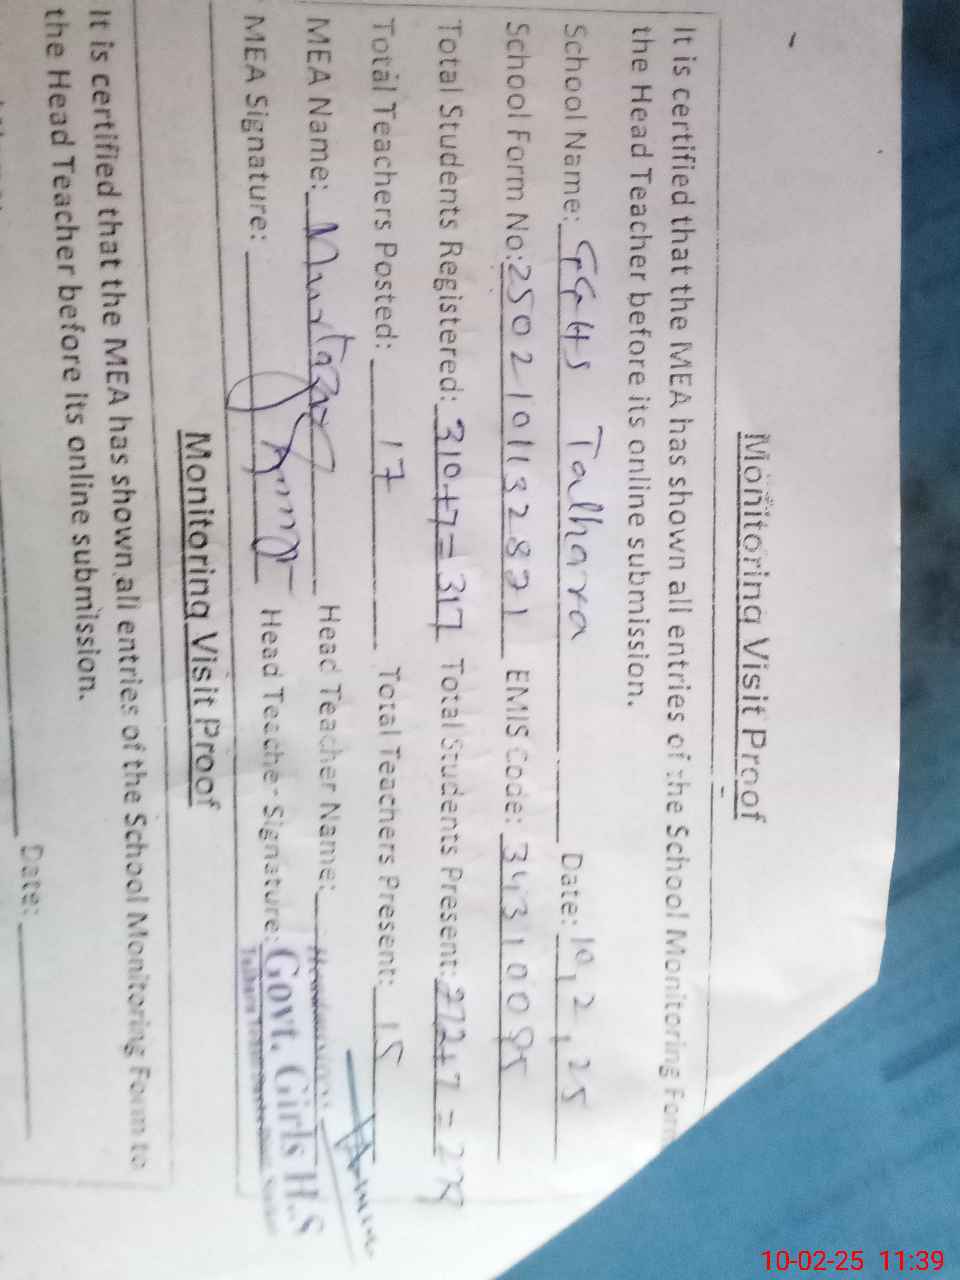 Monitoring Visit Proof
It is certified that the MEA has shown all entries of the School Monitoring Form
the Head Teacher before its online submission.
School Name: GGHS Talhara Date: 10,2,25
School Form No: 25021011 EMIS Code: 34310095
Total Students Registered: 310+7=317 Total Students Present: 272+7=279
Total Teachers Posted: 17 Total Teachers Present: 15
MEA Name: Mumtaz Head Teacher Name: Headmistress
MEA Signature: Head Teacher Signature: Govt. Girls H.S
Talhara
Monitoring Visit Proof
It is certified that the MEA has shown all entries of the School Monitoring Form to
the Head Teacher before its online submission.
Date:
10-02-25 11:39